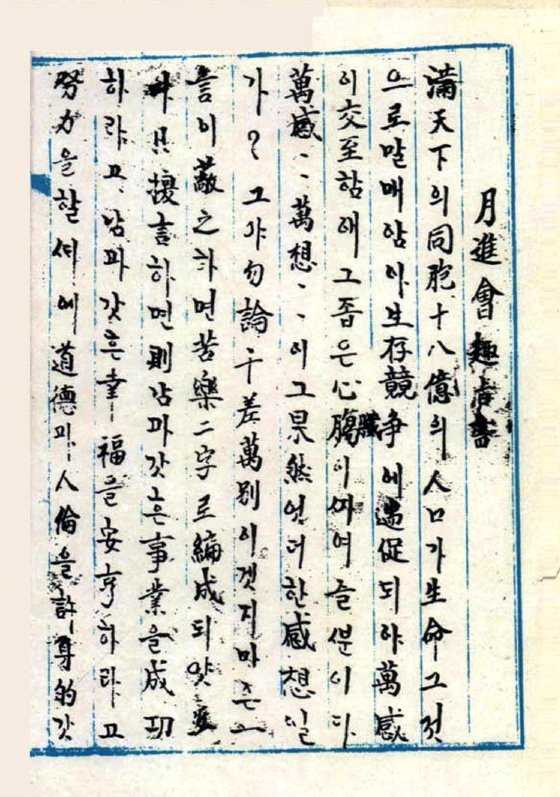 月進會趣旨書
滿天下의同胞十八億의人口가生命그것
으로말매암아生存競爭에逼促되야萬感
이交至함애그좁은心腹이째여즐뿐이다
萬感、、萬想、、이그果然엇더한感想일
가?그야勿論千差萬別이겟지마는一
言이蔽之하면苦樂二字로編成되얏
다!!換言하면則남과갓흔事業을成功
하랴고남과갓흔幸福을安亨하랴고
努力을할셰에道德과人倫을 身的갓